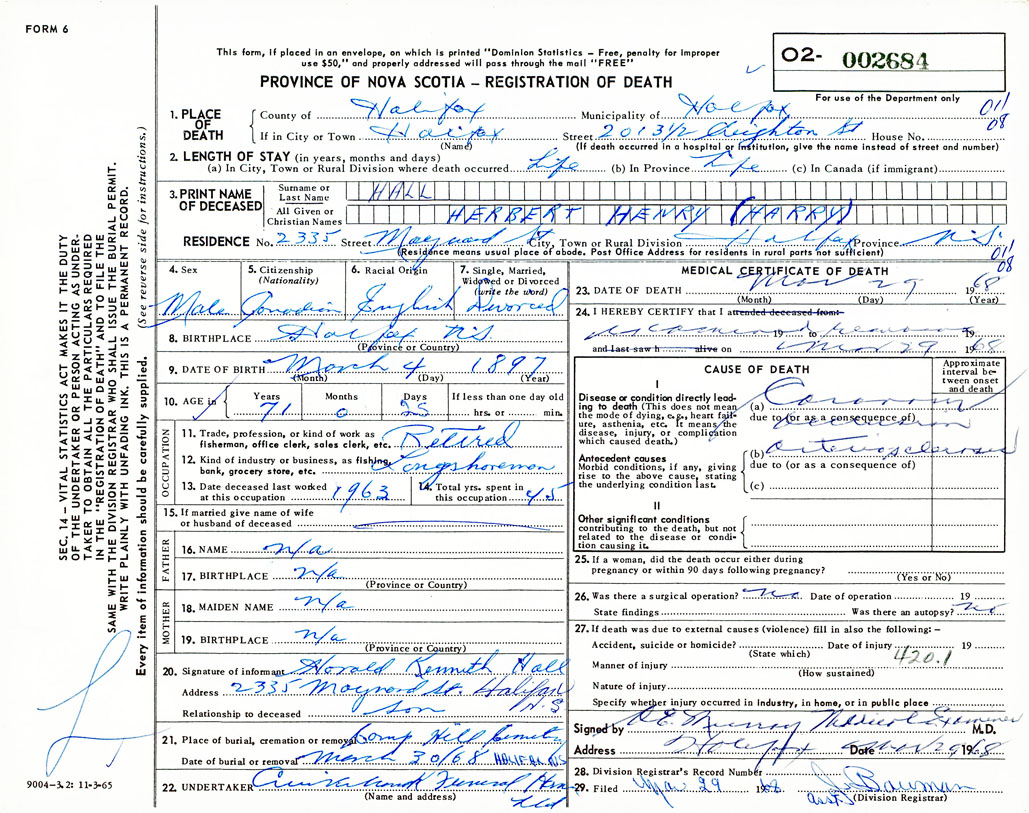 FORM 6
This form, if placed in an envelope, on which is printed "Dominion Statistics – Free, penalty for improper
use $50," and properly addressed will pass through the mail "FREE"
O2- 002684
For use of the Department only
PROVINCE OF NOVA SCOTIA – REGISTRATION OF DEATH
011
08
1. PLACE OF DEATH
County of Halifax Municipality of Halifax
If in City or Town Halifax Street 2013 1/2 Creighton St House No.
(Name) (If death occurred in a hospital or institution, give the name instead of street and number)
2. LENGTH OF STAY (in years, months and days)
(a) In City, Town or Rural Division where death occurred Life (b) In Province Life (c) In Canada (if immigrant)
3. PRINT NAME OF DECEASED
Surname or Last Name HALL
All Given or Christian Names HERBERT HENRY (HARRY)
RESIDENCE No. 2335 Street Maynard St City, Town or Rural Division Halifax Province N.S.
(Residence means usual place of abode. Post Office Address for residents in rural parts not sufficient)
011
08
4. Sex
Male
5. Citizenship
(Nationality)
Canadian
6. Racial Origin
English
7. Single, Married, Widowed or Divorced
(write the word)
Divorced
8. BIRTHPLACE Halifax N.S.
(Province or Country)
9. DATE OF BIRTH March 4 1897
(Month) (Day) (Year)
10. AGE in Years Months Days If less than one day old
71 0 25 hrs. or min.
OCCUPATION
11. Trade, profession, or kind of work as fisherman, office clerk, sales clerk, etc. Retired
12. Kind of industry or business, as fishing, bank, grocery store, etc. Longshoreman
13. Date deceased last worked at this occupation 1963
14. Total yrs. spent in this occupation 45
15. If married give name of wife or husband of deceased
FATHER
16. NAME n/a
17. BIRTHPLACE n/a
(Province or Country)
MOTHER
18. MAIDEN NAME n/a
19. BIRTHPLACE n/a
(Province or Country)
20. Signature of informant Harald Kenneth Hall
Address 2335 Maynard St. Halifax N.S
Relationship to deceased son
21. Place of burial, cremation or removal Camp Hill Cemetery
Date of burial or removal March 30/68 HALIFAX NS
22. UNDERTAKER Cruikshank Funeral Home Ltd
(Name and address)
MEDICAL CERTIFICATE OF DEATH
23. DATE OF DEATH Mar 29 1968
(Month) (Day) (Year)
24. I HEREBY CERTIFY that I attended deceased from
examined 19 to remains 19
and last saw h alive on Mar 29 1968
CAUSE OF DEATH
Approximate interval between onset and death
I
Disease or condition directly leading to death (This does not mean the mode of dying, e.g., heart failure, asthenia, etc. It means the disease, injury, or complication which caused death.)
(a) Coronary occlusion
due to (or as a consequence of)
Antecedent causes
Morbid conditions, if any, giving rise to the above cause, stating the underlying condition last.
(b) arteriosclerosis
due to (or as a consequence of)
(c)
II
Other significant conditions
contributing to the death, but not related to the disease or condition causing it.
25. If a woman, did the death occur either during pregnancy or within 90 days following pregnancy?
(Yes or No)
26. Was there a surgical operation? no. Date of operation 19
State findings Was there an autopsy? no
27. If death was due to external causes (violence) fill in also the following: –
Accident, suicide or homicide? Date of injury 19
(State which) 420.1
Manner of injury
(How sustained)
Nature of injury
Specify whether injury occurred in industry, in home, or in public place
Signed by Murray Medical Examiner M.D.
Address Halifax Date Mar 29 1968
28. Division Registrar's Record Number
29. Filed Mar 29 1968 Bauman
asst. (Division Registrar)
SEC. 14 – VITAL STATISTICS ACT MAKES IT THE DUTY
OF THE UNDERTAKER OR PERSON ACTING AS UNDER-
TAKER TO OBTAIN ALL THE PARTICULARS REQUIRED
IN THE "REGISTRATION OF DEATH" AND TO FILE THE
SAME WITH THE DIVISION REGISTRAR WHO SHALL ISSUE THE BURIAL PERMIT.
WRITE PLAINLY WITH UNFADING INK. THIS IS A PERMANENT RECORD.
Every item of information should be carefully supplied. (See reverse side for instructions.)
9004-3.2: 11-3-65